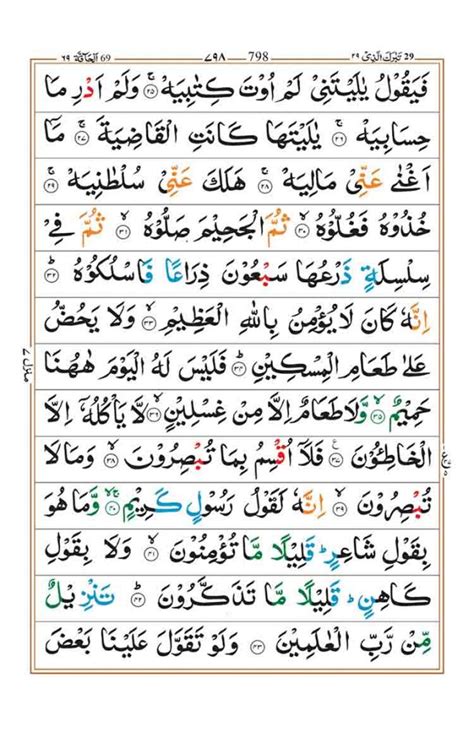 69 اَلۡحَآقَّة ٦٩ ٧٩٨ 798 تَبٰرَكَ الَّذِىۡ ٢٩ 29
فَيَقُوۡلُ يٰلَيۡتَنِىۡ لَمۡ اُوۡتَ كِتٰبِيَهۡ ۚ‏﴿۲۵﴾ وَلَمۡ اَدۡرِ مَا
حِسَابِيَهۡ‌ۚ‏﴿۲۶﴾ يٰلَيۡتَهَا كَانَتِ الۡقَاضِيَةَ‌ ۚ‏﴿۲۷﴾ مَاۤ
اَغۡنٰى عَنِّىۡ مَالِيَهۡۚ‏﴿۲۸﴾ هَلَكَ عَنِّىۡ سُلۡطٰنِيَهۡ‌ۚ‏﴿۲۹﴾
خُذُوۡهُ فَغُلُّوۡهُ ۙ‏﴿۳۰﴾ ثُمَّ الۡجَحِيۡمَ صَلُّوۡهُ ۙ‏﴿۳۱﴾ ثُمَّ فِىۡ
سِلۡسِلَةٍ ذَرۡعُهَا سَبۡعُوۡنَ ذِرَاعًا فَاسۡلُكُوۡهُ ؕ‏﴿۳۲﴾
اِنَّهٗ كَانَ لَا يُؤۡمِنُ بِاللّٰهِ الۡعَظِيۡمِۙ‏﴿۳۳﴾ وَلَا يَحُضُّ
عَلٰى طَعَامِ الۡمِسۡكِيۡنِؕ‏﴿۳۴﴾ فَلَيۡسَ لَـهُ الۡيَوۡمَ هٰهُنَا
حَمِيۡمٌۙ‏﴿۳۵﴾ وَّلَا طَعَامٌ اِلَّا مِنۡ غِسۡلِيۡنٍۙ‏﴿۳۶﴾ لَّا يَاۡكُلُهٗۤ اِلَّا
الۡخٰطِـُٔوۡنَ‏﴿۳۷﴾ فَلَاۤ اُقۡسِمُ بِمَا تُبۡصِرُوۡنَۙ‏﴿۳۸﴾ وَمَا لَا
تُبۡصِرُوۡنَۙ‏﴿۳۹﴾ اِنَّهٗ لَقَوۡلُ رَسُوۡلٍ كَرِيۡمٍۚ ۙ‏﴿۴۰﴾ وَّمَا هُوَ
بِقَوۡلِ شَاعِرٍ‌ؕ قَلِيۡلًا مَّا تُؤۡمِنُوۡنَۙ‏﴿۴۱﴾ وَلَا بِقَوۡلِ
كَاهِنٍ‌ؕ قَلِيۡلًا مَّا تَذَكَّرُوۡنَؕ‏﴿۴۲﴾ تَنۡزِيۡلٌ
مِّنۡ رَّبِّ الۡعٰلَمِيۡنَ‏﴿۴۳﴾ وَلَوۡ تَقَوَّلَ عَلَيۡنَا بَعۡضَ
منزل ٧